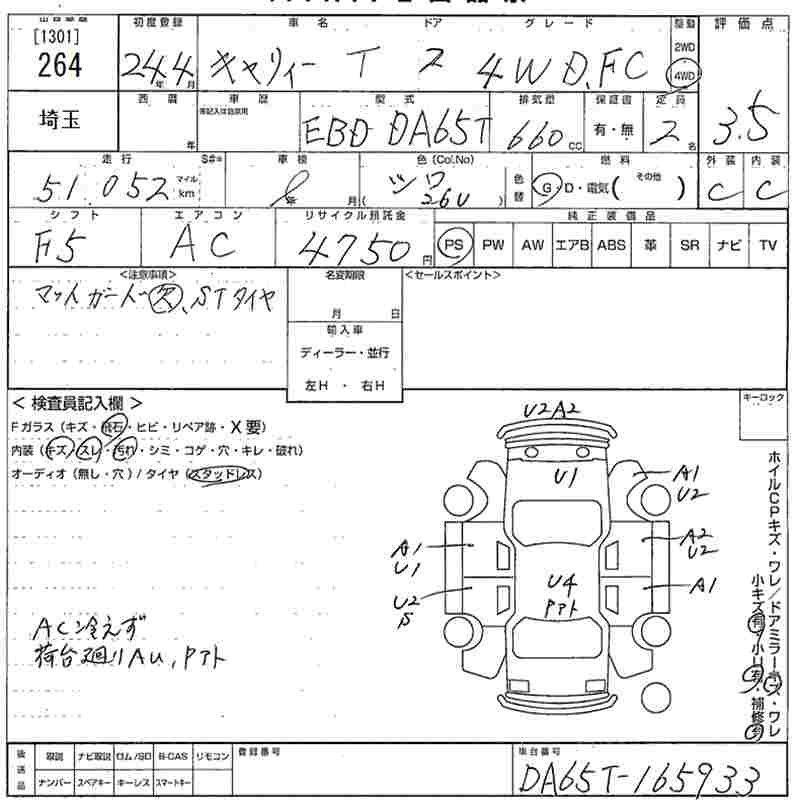 [1301]
264
埼玉
初度登録
24年4月
車名 ドア グレード
キャリィー T 2 4WD.FC
駆動
2WD
4WD
評価点
3.5
西暦
年
車歴
型式
EBD DA65T
排気量
660 cc
保証書
有・無
定員
2名
走行
51052
マイル
km
S#※
車検
年 月
色 (Col.No)
シロ
( 26U )
色替
燃料
G・D・電気( その他 )
外装
C
内装
C
シフト
F5
エアコン
AC
リサイクル預託金
4750円
純正装備品
PS PW AW エアB ABS 革 SR ナビ TV
<注意事項>
マットガード欠、STタイヤ
名変期限
月 日
輸入車
ディーラー・並行
左H ・ 右H
<セールスポイント>
キーロック
< 検査員記入欄 >
Fガラス (キズ・飛石・ヒビ・リペア跡・X要)
内装 (キズ・スレ・汚れ・シミ・コゲ・穴・キレ・破れ)
オーディオ (無し・穴) / タイヤ (スタッドレス)
AC冷えず
荷台廻りAU、Pアト
U2A2
U1
A1
U2
A2
U2
A1
A1
U1
U2
S
U4
Pアト
ホイルCPキズ・ワレ/ドアミラーキズ・ワレ
小キズ有・小凹有・補修有
後送品
取説 ナビ取説 ロム/SD B-CAS リモコン
ナンバー スペアキー キーレス スマートキー
登録番号
車台番号
DA65T-165933